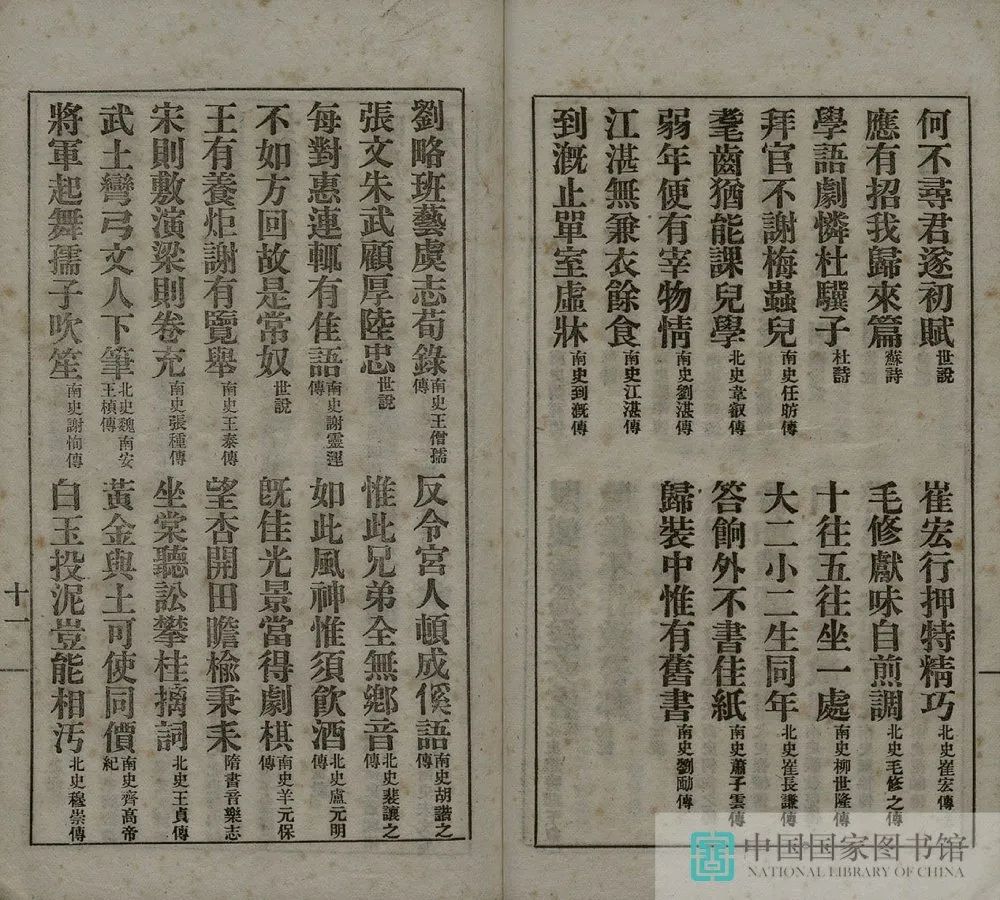 何不尋君遂初賦世說
崔宏行押特精巧北史崔宏傳
應有招我歸來篇蘇詩
毛修獻味白煎調北史毛修之傳
學語劇憐杜驥子杜詩
十往五往坐一處南史柳世隆傳
拜官不謝梅蟲兒南史任昉傳
大二小二生同年北史崔長謙傳
耄齒猶能課兒學北史韋叡傳
答餉外不書佳紙南史蕭子雲傳
弱年便有宰物情南史劉湛傳
歸裝中惟有舊書南史劉勔傳
江湛無兼衣餘食南史江湛傳
到溉止單室虛牀南史到溉傳
劉略班藝虞志荀錄南史王僧孺傳
反令宮人頓成傒語南史胡諧之傳
張文朱武顧厚陸忠世說
惟此兄弟全無鄉音北史裴讓之傳
每對惠連輒有佳語南史謝靈運傳
如此風神惟須飲酒北史盧元明傳
不如方回故是常奴世說
既佳光景當得劇棋南史羊元保傳
王有養炬謝有覽舉南史王泰傳
望杏開田瞻榆秉耒隋書音樂志
宋則敷演梁則卷充南史張種傳
坐棠聽訟攀桂摛詞北史王貞傳
武士彎弓文人下筆北史魏南安王楨傳
黃金與土可使同價南史齊高帝紀
將軍起舞孺子吹笙南史謝恂傳
白玉投泥豈能相汚北史穆崇傳
十一
中国国家图书馆
NATIONAL LIBRARY OF CHINA